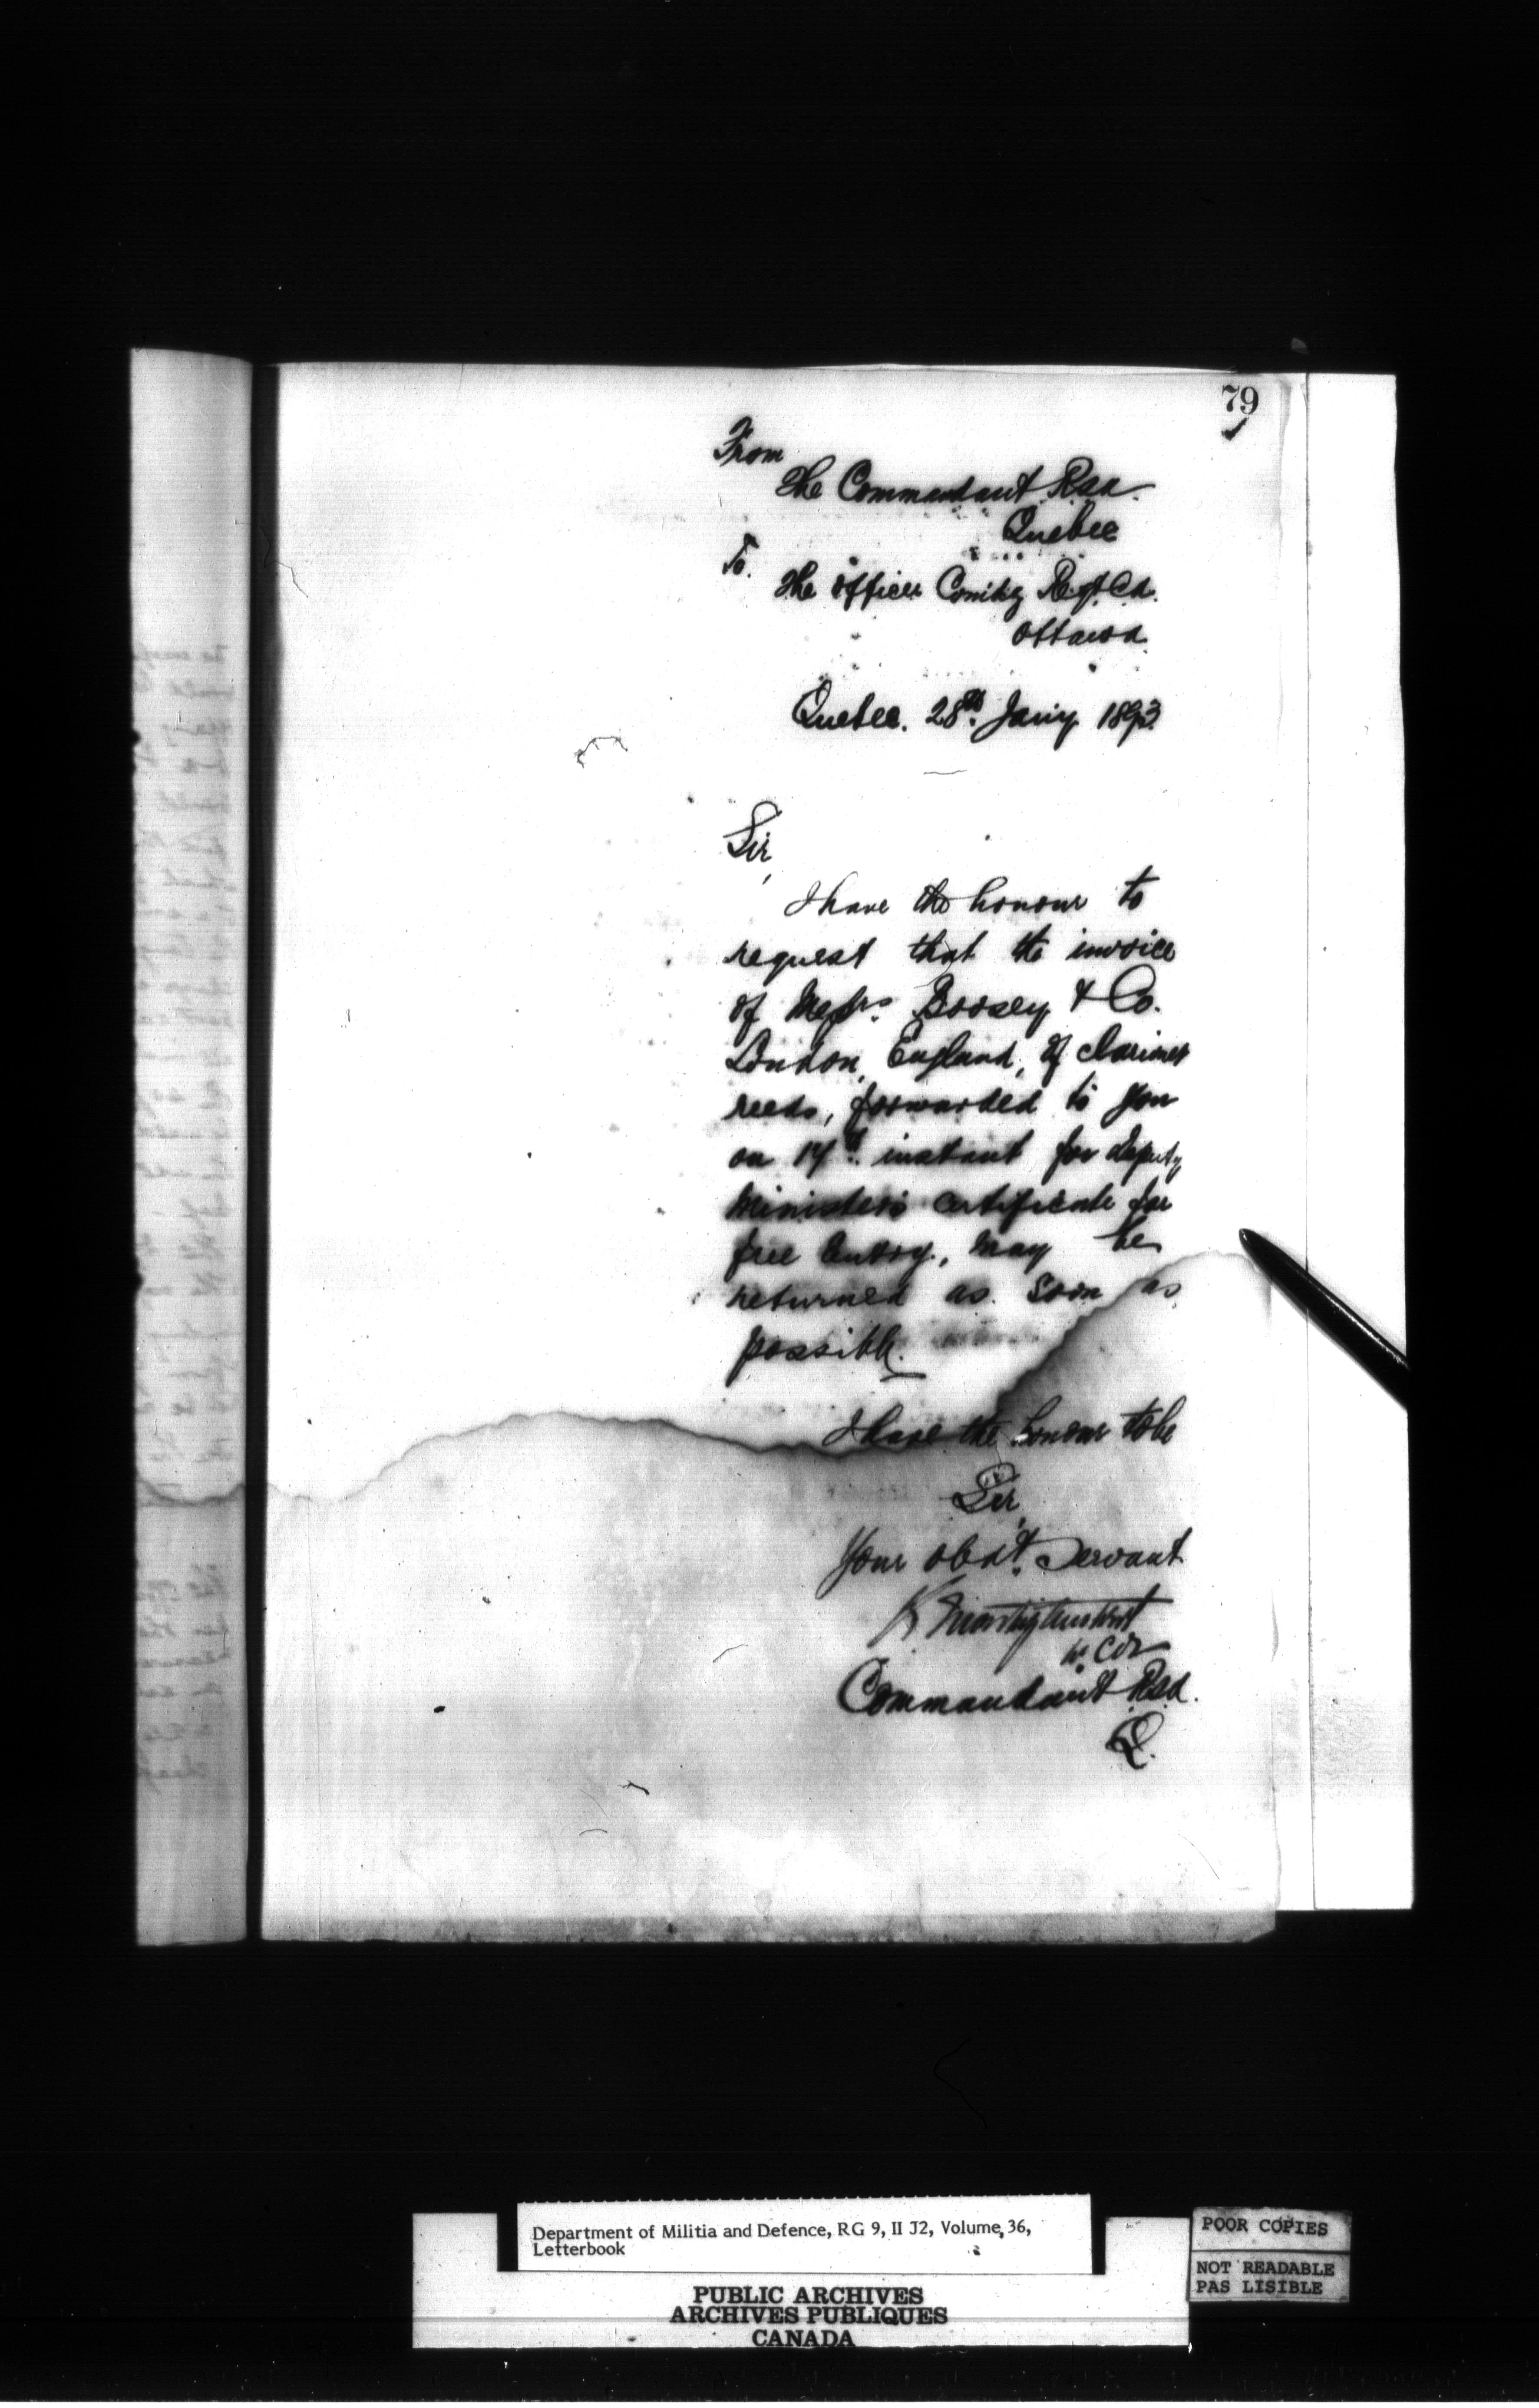 79
From
The Commandant RSA.
Quebec
To.
The Officer Comdg Regt CA.
Ottawa.
Quebec. 28th Jan'y 1893.
Sir,
I have the honour to
request that the invoice
of Messrs. Boosey & Co.
London, England, of clarinet
reeds, forwarded to you
on 14th instant for deputy
Minister's certificate for
free Entry, may be
returned as soon as
possible.
I have the honour to be
Sir,
Your obdt. Servant
Commandant RSA.
Q.
Department of Militia and Defence, RG 9, II J2, Volume 36,
Letterbook
PUBLIC ARCHIVES
ARCHIVES PUBLIQUES
CANADA
POOR COPIES
NOT READABLE
PAS LISIBLE